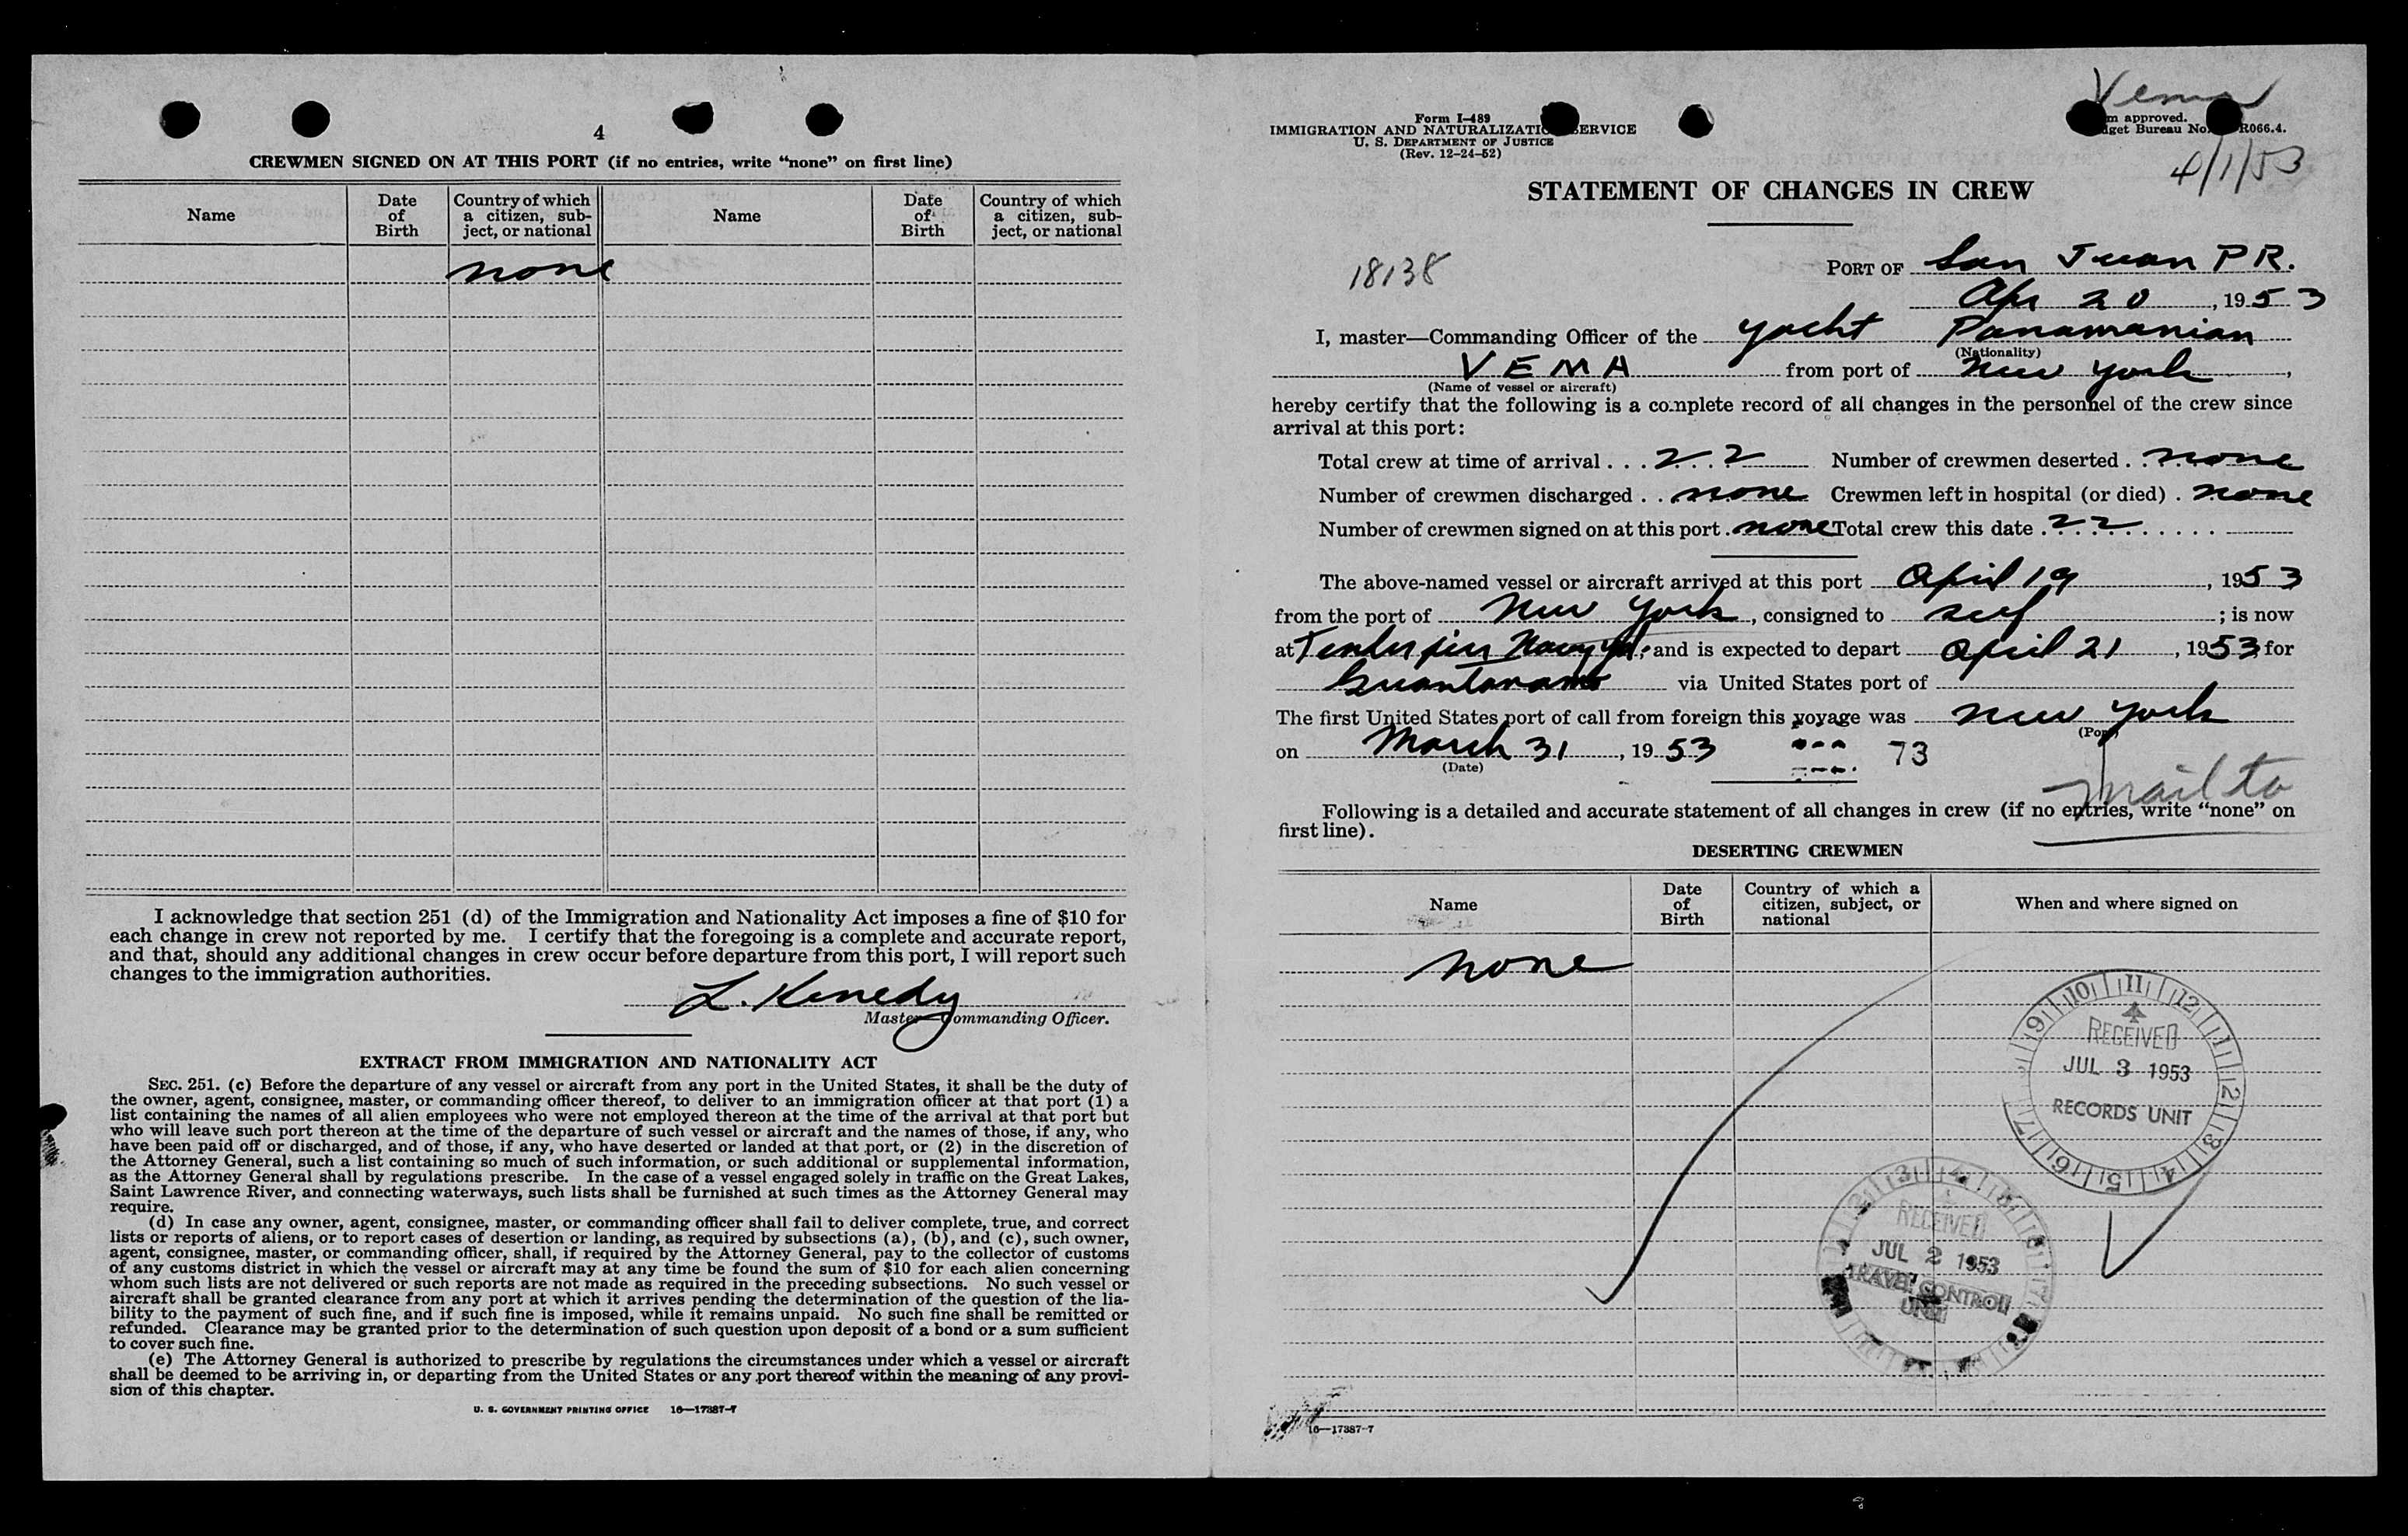 4
CREWMEN SIGNED ON AT THIS PORT (if no entries, write “none” on first line)
Name Date of Birth Country of which a citizen, sub- ject, or national Name Date of Birth Country of which a citizen, sub- ject, or national
none
I acknowledge that section 251 (d) of the Immigration and Nationality Act imposes a fine of $10 for
each change in crew not reported by me. I certify that the foregoing is a complete and accurate report,
and that, should any additional changes in crew occur before departure from this port, I will report such
changes to the immigration authorities.
L. Kenedy
Master—Commanding Officer.
EXTRACT FROM IMMIGRATION AND NATIONALITY ACT
SEC. 251. (c) Before the departure of any vessel or aircraft from any port in the United States, it shall be the duty of
the owner, agent, consignee, master, or commanding officer thereof, to deliver to an immigration officer at that port (1) a
list containing the names of all alien employees who were not employed thereon at the time of the arrival at that port but
who will leave such port thereon at the time of the departure of such vessel or aircraft and the names of those, if any, who
have been paid off or discharged, and of those, if any, who have deserted or landed at that port, or (2) in the discretion of
the Attorney General, such a list containing so much of such information, or such additional or supplemental information,
as the Attorney General shall by regulations prescribe. In the case of a vessel engaged solely in traffic on the Great Lakes,
Saint Lawrence River, and connecting waterways, such lists shall be furnished at such times as the Attorney General may
require.
(d) In case any owner, agent, consignee, master, or commanding officer shall fail to deliver complete, true, and correct
lists or reports of aliens, or to report cases of desertion or landing, as required by subsections (a), (b), and (c), such owner,
agent, consignee, master, or commanding officer, shall, if required by the Attorney General, pay to the collector of customs
of any customs district in which the vessel or aircraft may at any time be found the sum of $10 for each alien concerning
whom such lists are not delivered or such reports are not made as required in the preceding subsections. No such vessel or
aircraft shall be granted clearance from any port at which it arrives pending the determination of the question of the lia-
bility to the payment of such fine, and if such fine is imposed, while it remains unpaid. No such fine shall be remitted or
refunded. Clearance may be granted prior to the determination of such question upon deposit of a bond or a sum sufficient
to cover such fine.
(e) The Attorney General is authorized to prescribe by regulations the circumstances under which a vessel or aircraft
shall be deemed to be arriving in, or departing from the United States or any port thereof within the meaning of any provi-
sion of this chapter.
U. S. GOVERNMENT PRINTING OFFICE 16—17387-7
Vema
Form I-489
IMMIGRATION AND NATURALIZATION SERVICE
U. S. DEPARTMENT OF JUSTICE
(Rev. 12-24-52)
approved.
Budget Bureau No. R066.4.
4/1/53
STATEMENT OF CHANGES IN CREW
18138
PORT OF San Juan P R.
Apr 20, 1953
I, master—Commanding Officer of the yacht Panamanian
(Nationality)
VEMA from port of New York,
(Name of vessel or aircraft)
hereby certify that the following is a complete record of all changes in the personnel of the crew since
arrival at this port:
Total crew at time of arrival . . . 22 Number of crewmen deserted . . none
Number of crewmen discharged . . none Crewmen left in hospital (or died) . none
Number of crewmen signed on at this port . none Total crew this date . 22
The above-named vessel or aircraft arrived at this port April 19, 1953
from the port of New York, consigned to self; is now
at Tender pier Navy Yd. and is expected to depart April 21, 1953 for
Guantanamo via United States port of
The first United States port of call from foreign this voyage was New York
(Port)
on March 31, 1953 73
(Date)
mail to
Following is a detailed and accurate statement of all changes in crew (if no entries, write “none” on
first line).
DESERTING CREWMEN
Name Date of Birth Country of which a citizen, subject, or national When and where signed on
none
9 10 11 12 1 2 3 4 5 6 7
RECEIVED
JUL 3 1953
RECORDS UNIT
RECEIVED
JUL 2 1953
TRAVEL CONTROL
UNIT
16—17387-7